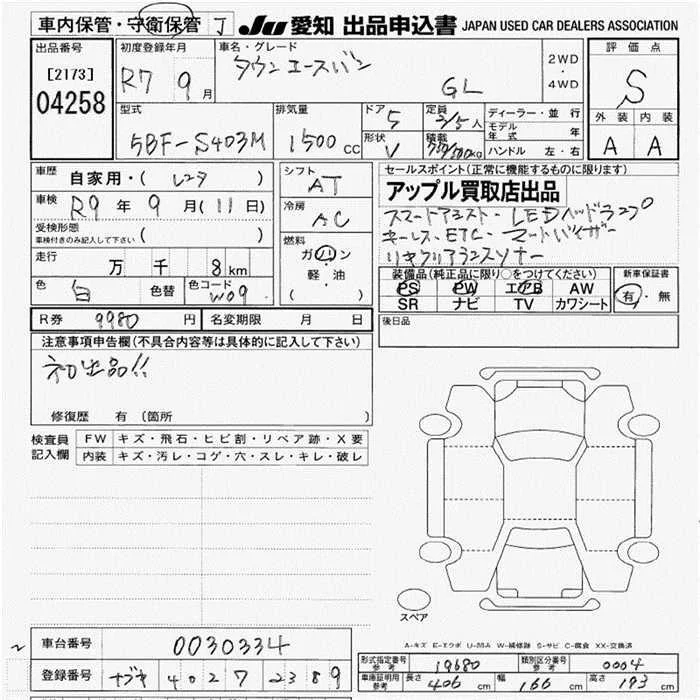 車内保管・守衛保管 丁 JU 愛知 出品申込書 JAPAN USED CAR DEALERS ASSOCIATION
出品番号 [2173] 04258
初度登録年月 R7 9月
車名・グレード タウンエースバン GL
2WD ・ 4WD
評価点 S
外装 A 内装 A
型式 5BF-S403M
排気量 1500 cc
ドア 5
形状 V
定員 2/5人
積載 kg
ディーラー・並行
モデル年式 年
ハンドル 左・右
車歴 自家用・( レンタ )
車検 R9年 9月(11日)
受検形態 ( )
車検付きのみ記入して下さい
走行 万 千 8km
色 白 色替 色コード W09
シフト AT
冷房 AC
燃料 ガソリン
軽・油
( )
セールスポイント(正常に機能するものに限ります)
アップル買取店出品
スマートアシスト・LEDヘッドランプ
キーレス・ETC・マットバイザー
リヤクリアランスソナー
装備品(純正品に限り○をつけてください)
PS PW エアB AW
SR ナビ TV カワシート
新車保証書 有・無
R券 9980円 名変期限 月 日
後日品
注意事項申告欄(不具合内容等は具体的に記入して下さい)
初出品!!
修復歴 有(箇所 )
検査員記入欄
FW キズ・飛石・ヒビ割・リペア跡・X要
内装 キズ・汚レ・コゲ・穴・スレ・キレ・破レ
スペア
A-キズ E-エクボ U-凹み W-補修跡 S-サビ C-腐食 XX-交換済
車台番号 0030334
登録番号 402 72389
型式指定番号 参考 19680 類別区分番号 参考 0004
車庫証明用 参考 長さ 406 cm 幅 166 cm 高さ 193 cm